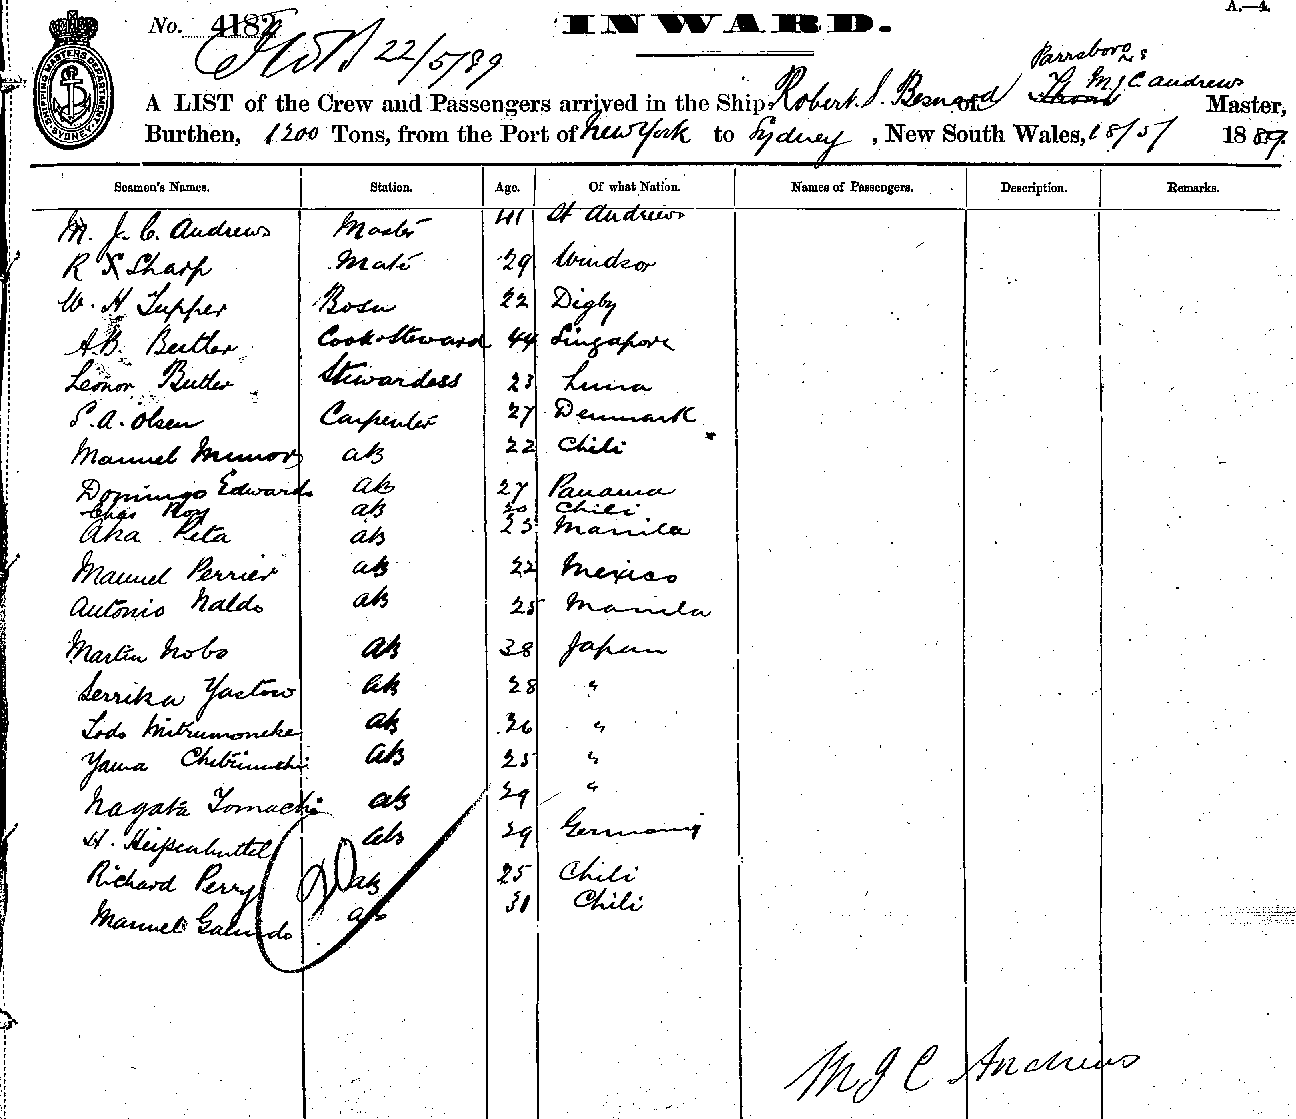 A.—4.
No. 4182 INWARD.
22/5/89
Parrsboro N.S
A LIST of the Crew and Passengers arrived in the Ship Robert S. Besnard of M J C Andrews Master,
Burthen, 1200 Tons, from the Port of New York to Sydney, New South Wales, 18/5/ 1889.
SHIPPING MASTERS DEPARTMENT SYDNEY
Seamen's Names. Station. Age. Of what Nation. Names of Passengers. Description. Remarks.
M. J. C. Andrews Master 41 St Andrews
R S Sharp Mate 29 Windsor
W. H Tupper Bosn 22 Digby
A B. Butler Cook & Steward 44 Singapore
Leonor Butler Stewardess 23 Lima
P. A. Olsen Carpenter 27 Denmark
Manuel Munoz AB 22 Chili
Domingo Edwards AB 27 Panama
Chas Roy AB 20 Chili
Aha Peta AB 25 Manila
Manuel Perrier AB 22 Mexico
Antonio Naldo AB 25 Manila
Martin Nobo AB 38 Japan
Serrika Yastow AB 28 "
Todo AB 26 "
Yama AB 25 "
Nagata Tomachi AB 29 "
H. Heissenbuttel AB 29 Germany
Richard Perry AB 25 Chili
Manuel Galindo AB 31 Chili
M J C Andrews